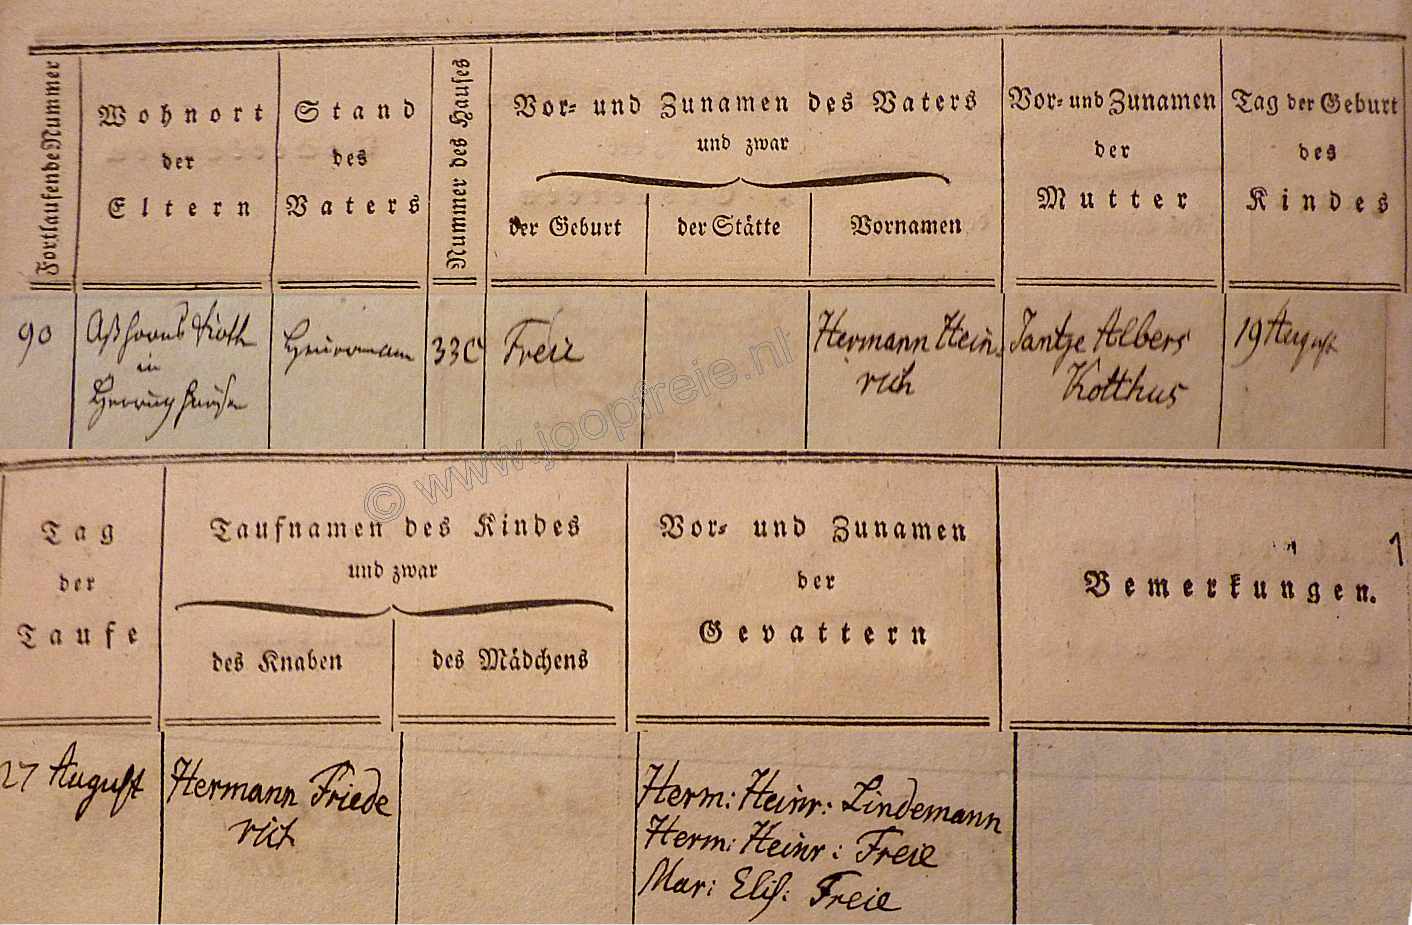 Fortlaufende Nummer
Wohnort
der
Eltern
Stand
des
Vaters
Nummer des Hauses
Vor- und Zunamen des Vaters
und zwar
der Geburt
der Stätte
Vornamen
Vor- und Zunamen
der
Mutter
Tag der Geburt
des
Kindes
90
in
Heuermann
33C
Freie
Hermann Hein-
rich
Jantze Albers
Kotthus
19 August
© www.joopfreie.nl
Tag
der
Taufe
Taufnamen des Kindes
und zwar
des Knaben
des Mädchens
Vor- und Zunamen
der
Gevattern
Bemerkungen.
1
27 August
Hermann Friede
rich
Herm: Heinr: Lindemann
Herm: Heinr: Freie
Mar: Elis: Freie